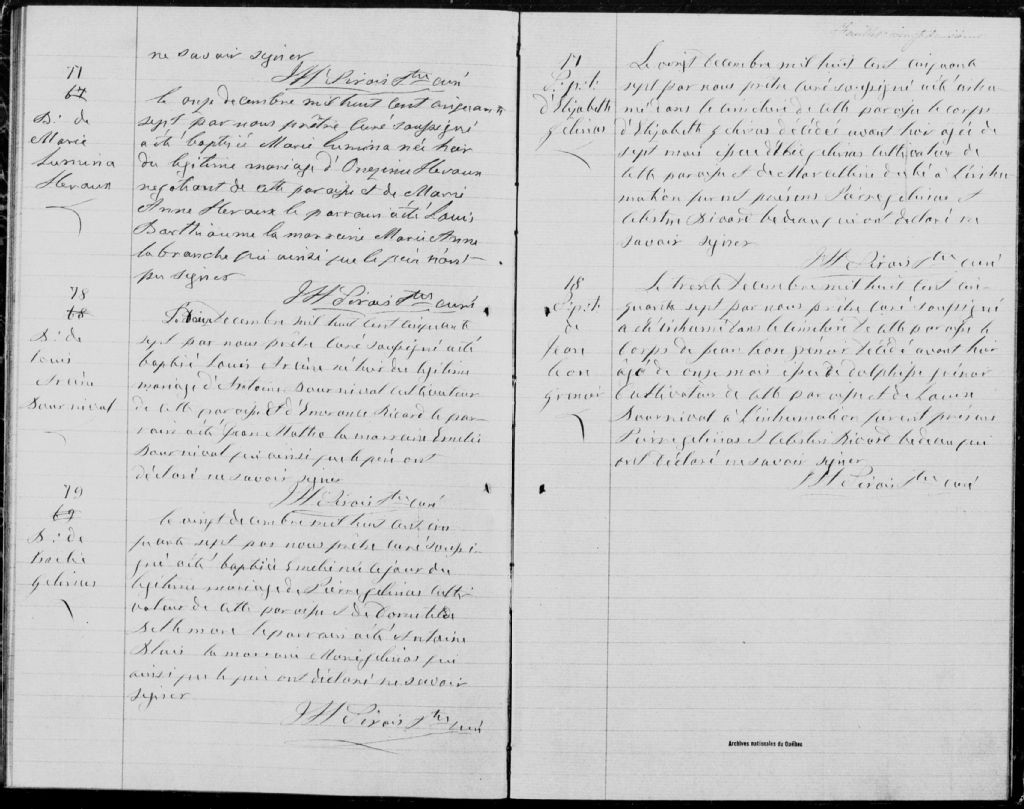 ne savoir signer
JH Sirois Ptre curé
77
67
B. de
Marie
Lumina
Heroux
le onze decembre mil huit cent cinquante
sept par nous prêtre curé soussigné
a été baptisée Marie Lumina née hier
du légitime mariage d'Onezime Heroux
negotiant de cette paroisse et de Marie
Anne Heroux le parrain a été Louis
Barthiaume la marraine Marie Anne
labranche qui ainsi que le père n'ont
pu signer
JH Sirois Ptre curé
78
68
B. de
Louis
Bournival
decembre mil huit cent cinquante
sept par nous prêtre curé soussigné a été
baptisé Louis né hier du légitime
mariage d'Antoine Bournival cultivateur
de cette paroisse et d'Emerance Ricard le par-
rain a été Jean la marraine Emelie
Bournival qui ainsi que le père ont
déclaré ne savoir signer
JH Sirois Ptre curé
79
69
B. de
Gelinas
le vingt decembre mil huit cent cin
quante sept par nous prêtre curé soussi
gné a été baptisée Emelie née le jour du
légitime mariage de Pierre Gelinas culti
vateur de cette paroisse et de Domitilde
Bellemare le parrain a été Antoine
Blais la marraine Marie Gelinas qui
ainsi que le père ont déclaré ne savoir
signer
JH Sirois Ptre curé
17
Sépt.
d'Elizabeth
gelinas
Le vingt decembre mil huit cent cinquante
sept par nous prêtre curé soussigné a été inhu
mé dans le cimetière de cette paroisse le corps
d'Elizabeth gelinas décédée avant hier agée de
sept mois issue de gelinas cultivateur de
cette paroisse et de Marcelline à l'inhu
mation furent présens Pierre gelinas et
Celestin Ricard bedeau qui ont déclaré ne
savoir signer
JH Sirois Ptre curé
18
Sépt.
de
Jean
Leon
grenier
Le trente decembre mil huit cent cin
quante sept par nous prêtre curé soussigné
a été inhumé dans le cimetière de cette paroisse le
corps de Jean Leon grenier décédé avant hier
âgé de onze mois issu de dolphise grenier
Cultivateur de cette paroisse et de Louise
Bournival à l'inhumation furent présens
Pierre gelinas et Celestin Ricard bedeau qui
ont déclaré ne savoir signer
JH Sirois Ptre curé
Archives nationales du Québec